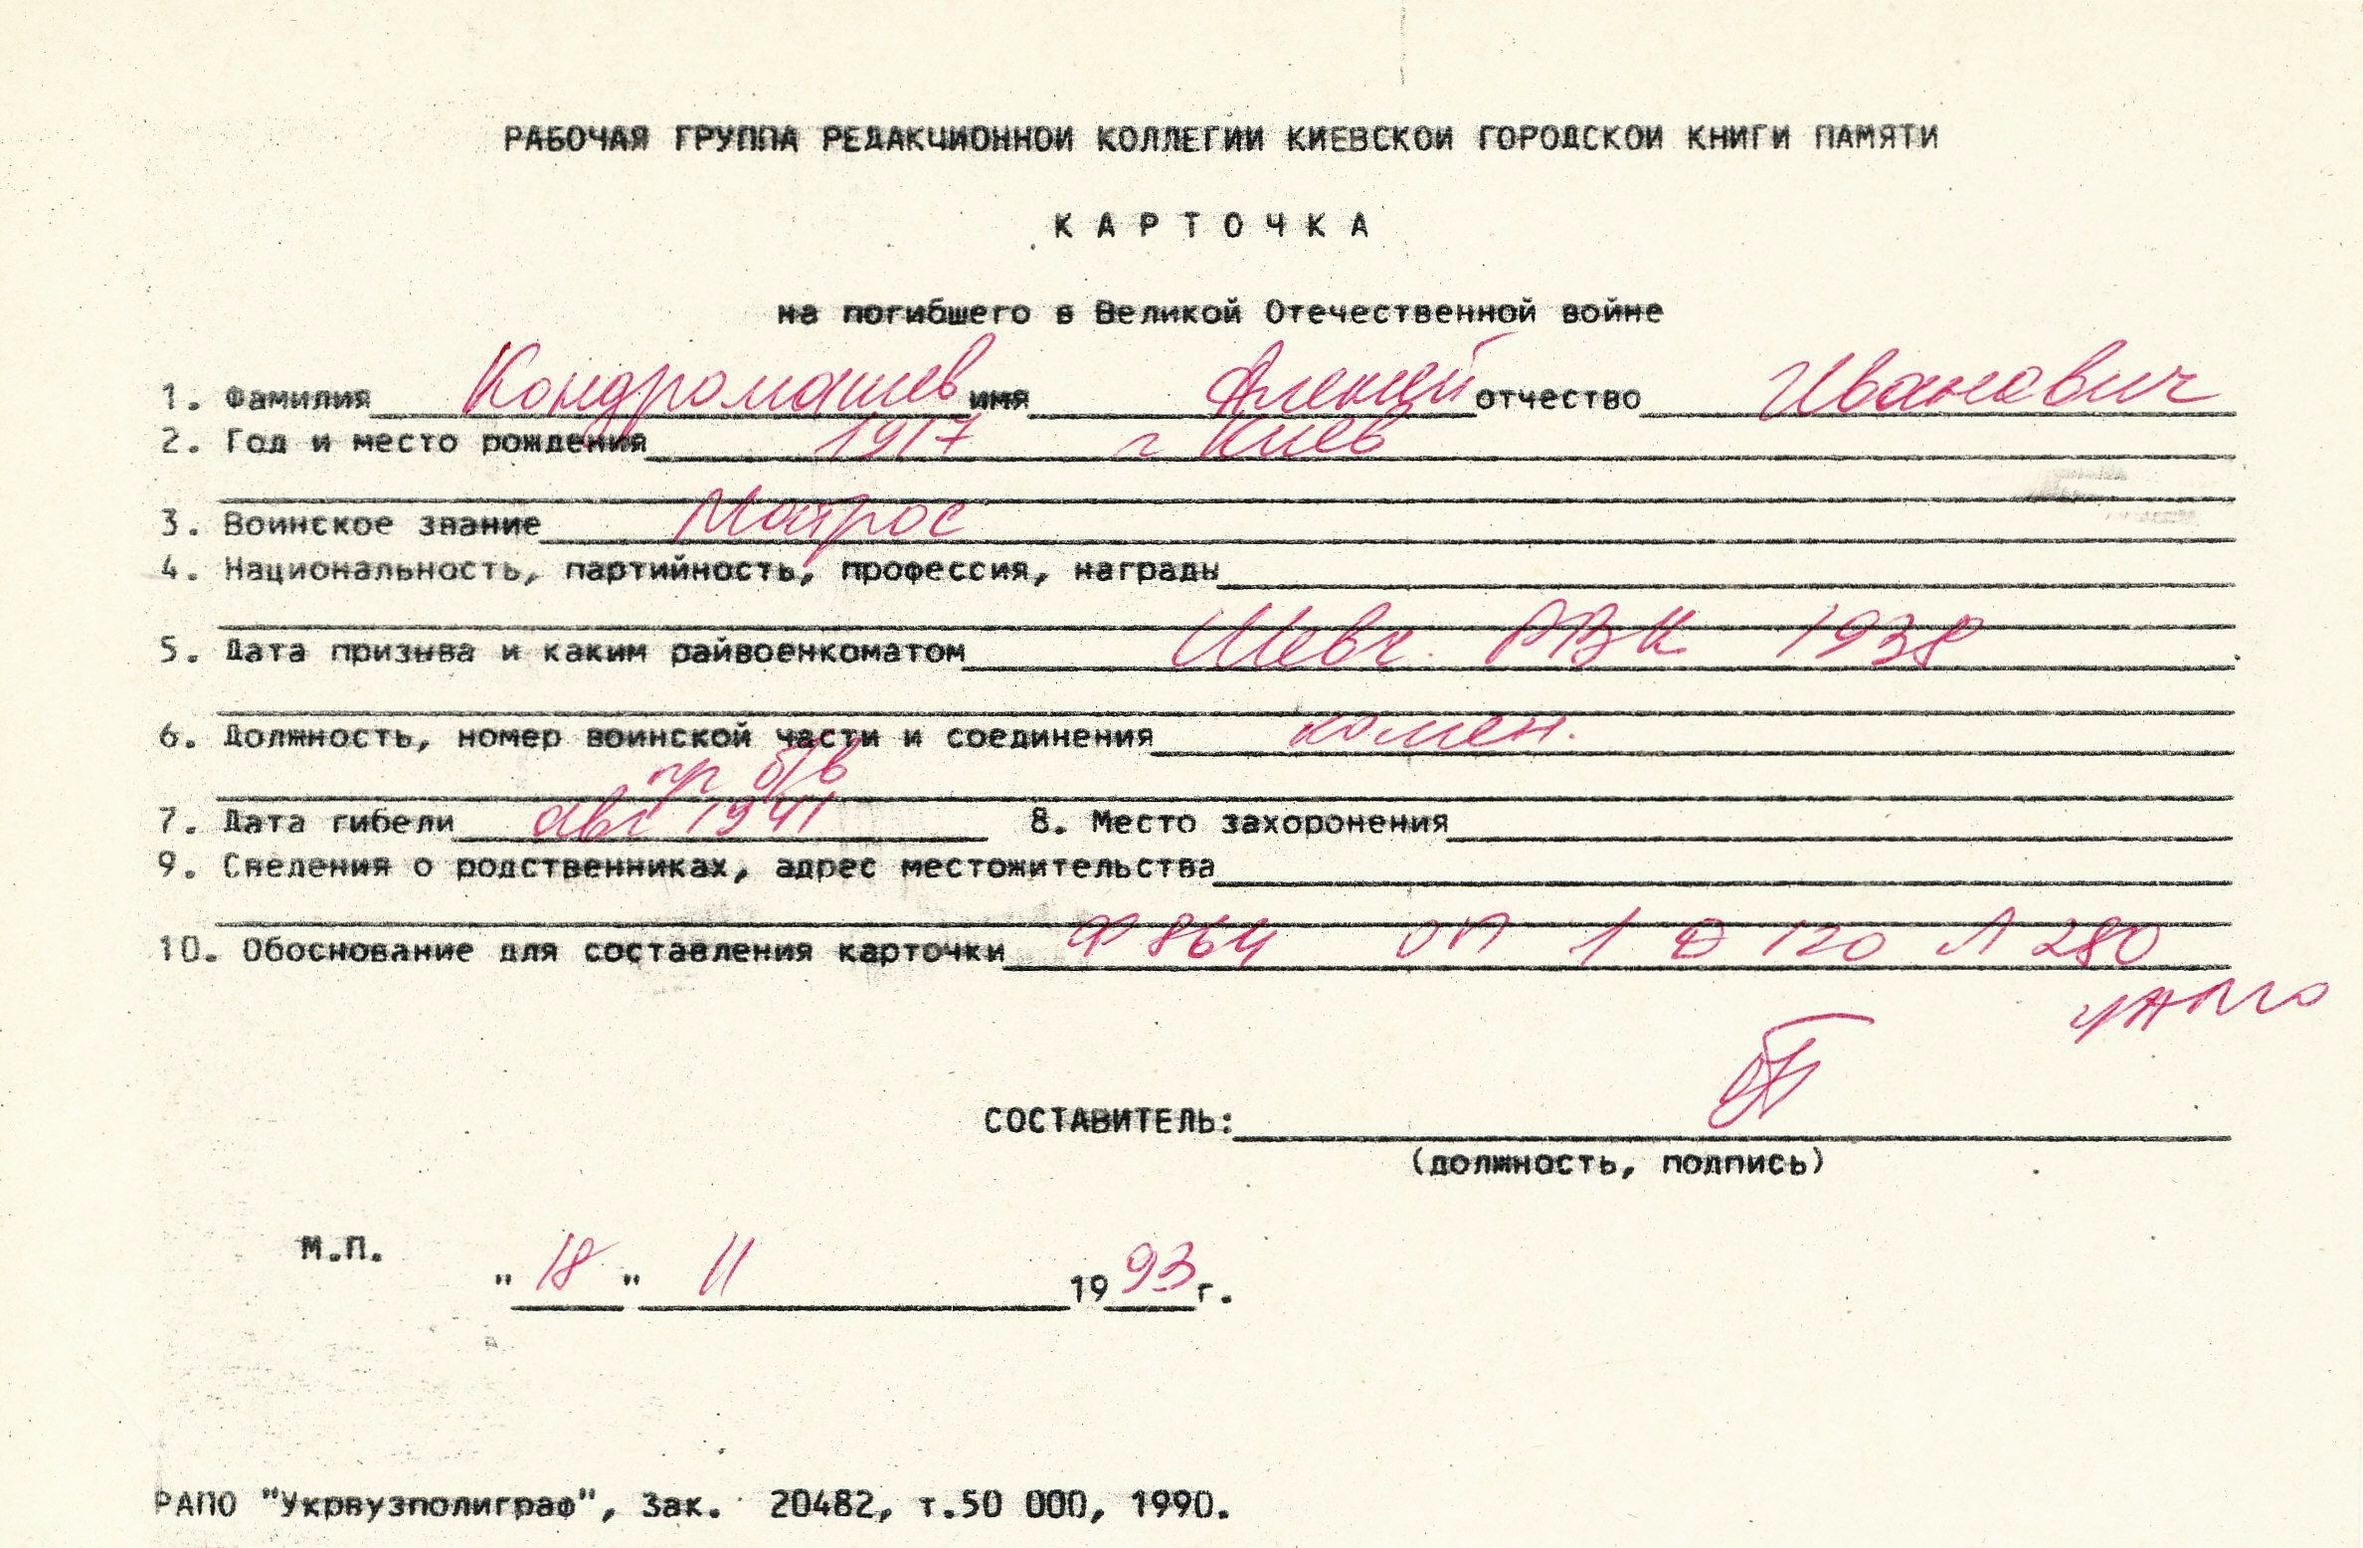 РАБОЧАЯ ГРУППА РЕДАКЦИОННОЙ КОЛЛЕГИИ КИЕВСКОЙ ГОРОДСКОЙ КНИГИ ПАМЯТИ
КАРТОЧКА
на погибшего в Великой Отечественной войне
1. Фамилия Кондромашев имя Алексей отчество Иванович
2. Год и место рождения 1917 г Киев
3. Воинское звание Матрос
4. Национальность, партийность, профессия, награды
5. Дата призыва и каким райвоенкоматом Шевч. РВК 1938
6. Должность, номер воинской части и соединения комен.
пр б/в
7. Дата гибели авг 1941 8. Место захоронения
9. Сведения о родственниках, адрес местожительства
10. Обоснование для составления карточки Ф 864 ОП 1 Д 120 Л 280
СОСТАВИТЕЛЬ:
(должность, подпись)
М.П.
"18" 11 1993г.
РАПО "Укрвузполиграф", Зак. 20482, т.50 000, 1990.